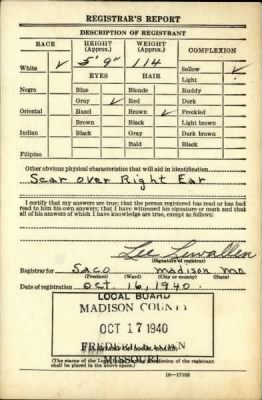 REGISTRAR'S REPORT
DESCRIPTION OF REGISTRANT
RACE HEIGHT (Approx.) WEIGHT (Approx.) COMPLEXION
White ✓ 5' 9" 114 Sallow ✓
EYES HAIR Light
Negro Blue Blonde Ruddy
Gray ✓ Red Dark
Oriental Hazel Brown ✓ Freckled
Brown Black Light brown
Indian Black Gray Dark brown
Bald Black
Filipino
Other obvious physical characteristics that will aid in identification
Scar over Right Ear
I certify that my answers are true; that the person registered has read or has had read to him his own answers; that I have witnessed his signature or mark and that all of his answers of which I have knowledge are true, except as follows:
Lee Lewallen
(Signature of registrar)
Registrar for Saco Madison Mo.
(Precinct) (Ward) (City or county) (State)
Date of registration Oct. 16, 1940.
LOCAL BOARD
MADISON COUNTY
OCT 17 1940
FREDERICKTOWN
MISSOURI
16-17105